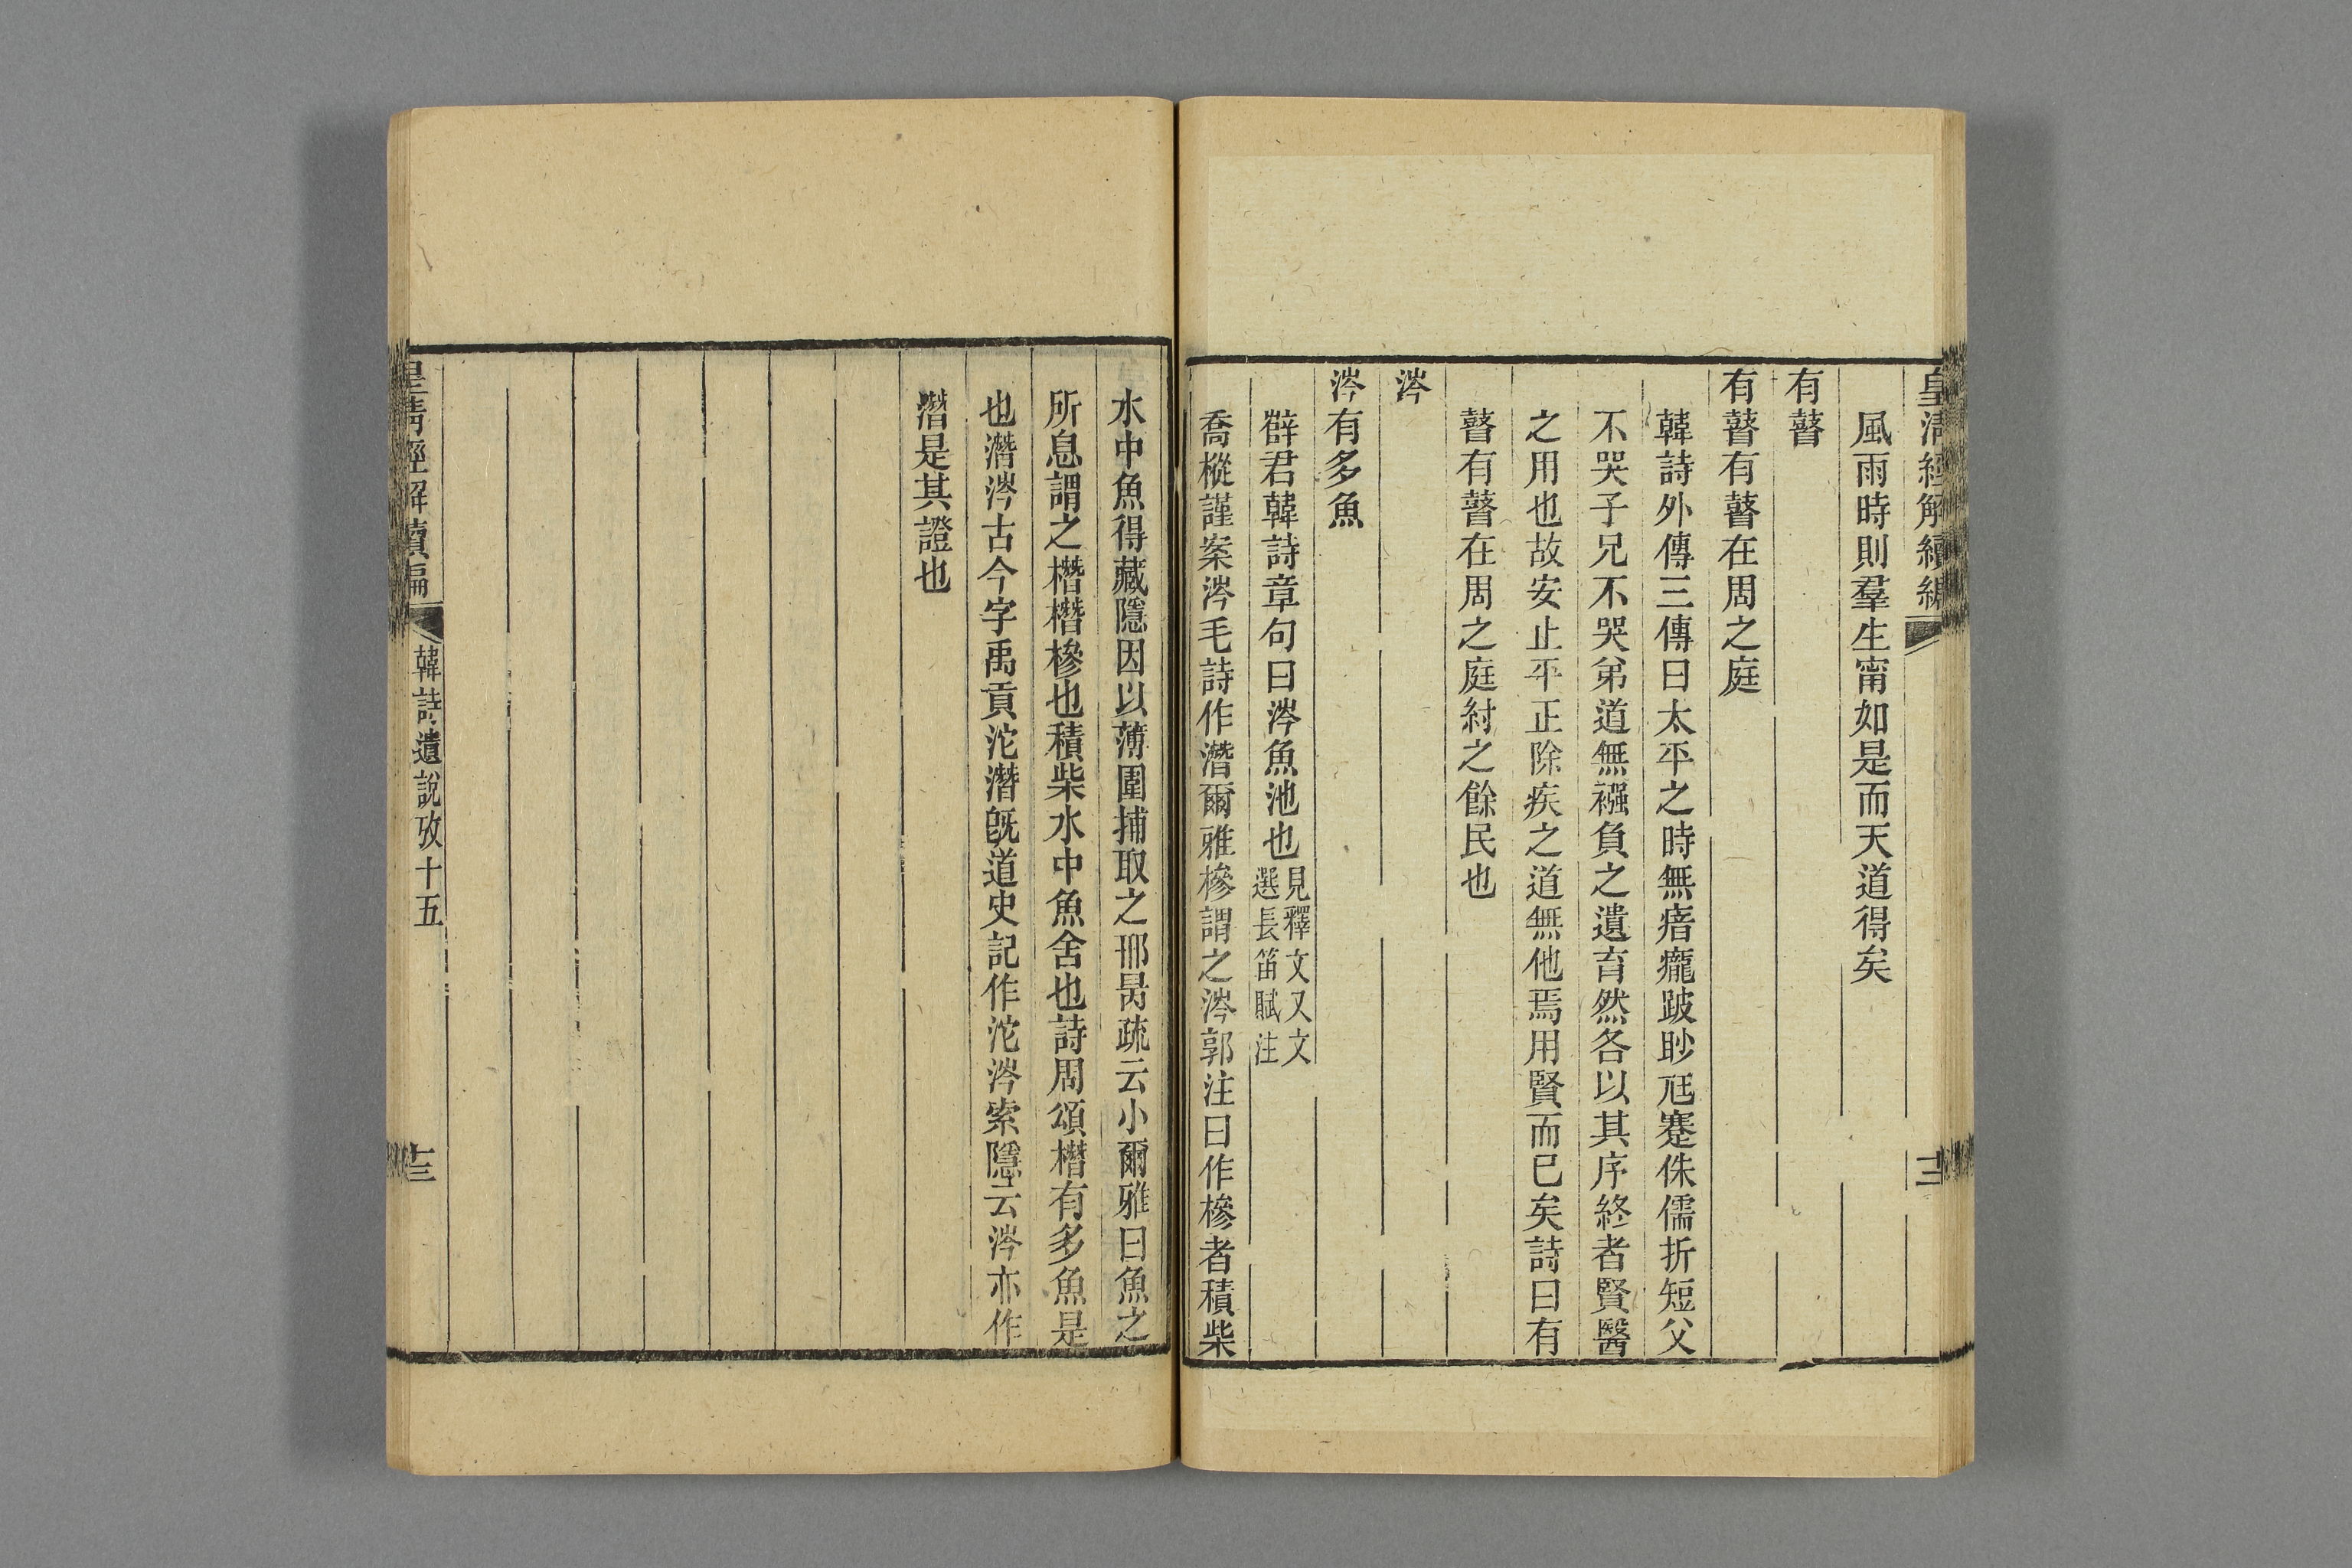 皇清經解續編
風雨時則羣生甯如是而天道得矣
有瞽
有瞽有瞽在周之庭
韓詩外傳三傳曰太平之時無瘖㿈跛眇尫蹇侏儒折短父
不哭子兄不哭弟道無襁負之遺育然各以其序終者賢醫
之用也故安止平正除疾之道無他焉用賢而已矣詩曰有
瞽有瞽在周之庭紂之餘民也
涔
涔有多魚
薛君韓詩章句曰涔魚池也見釋文又文
選長笛賦注
喬樅謹案涔毛詩作潛爾雅槮謂之涔郭注曰作槮者積柴
水中魚得藏隱因以薄圍捕取之邢昺疏云小爾雅曰魚之
所息謂之橬橬槮也積柴水中魚舍也詩周頌橬有多魚是
也潛涔古今字禹貢沱潛旣道史記作沱涔索隱云涔亦作
潛是其證也
皇清經解續編
韓詩遺說攷十五